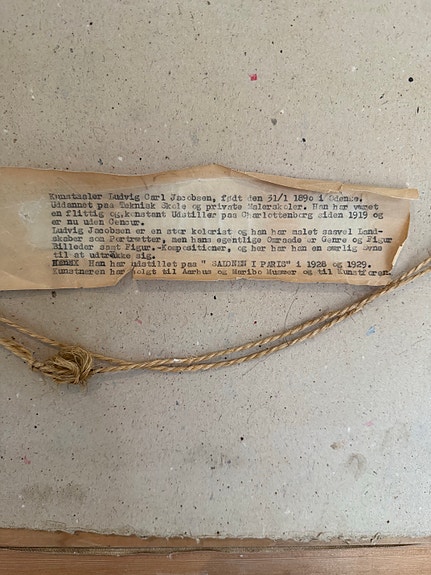 Kunstmaler Ludvig Carl Jacobsen, født den 31/1 1890 i Odense.
Uddannet paa Teknisk Skole og private Malerskoler. Han har været
en flittig og konstant Udstiller paa Charlottenborg siden 1919 og
er nu uden Censur.
Ludvig Jacobsen er en stor kolorist og han har malet saavel Land-
skaber som Portrætter, men hans egentlige Omraade er Genre og Figur
Billeder samt Figur.-Kompositioner, og her har han en særlig Evne
til at udtrykke sig.
Han har udstillet paa " SALONEN I PARIS" i 1928 og 1929.
Kunstneren har solgt til Aarhus og Maribo Museer og til Kunstforen.